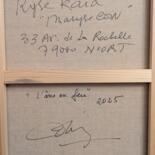 Kyse Raid
"Maryse CON"
33 Av. de La Rochelle
79000 NIORT
"L'âme en feu" 2025